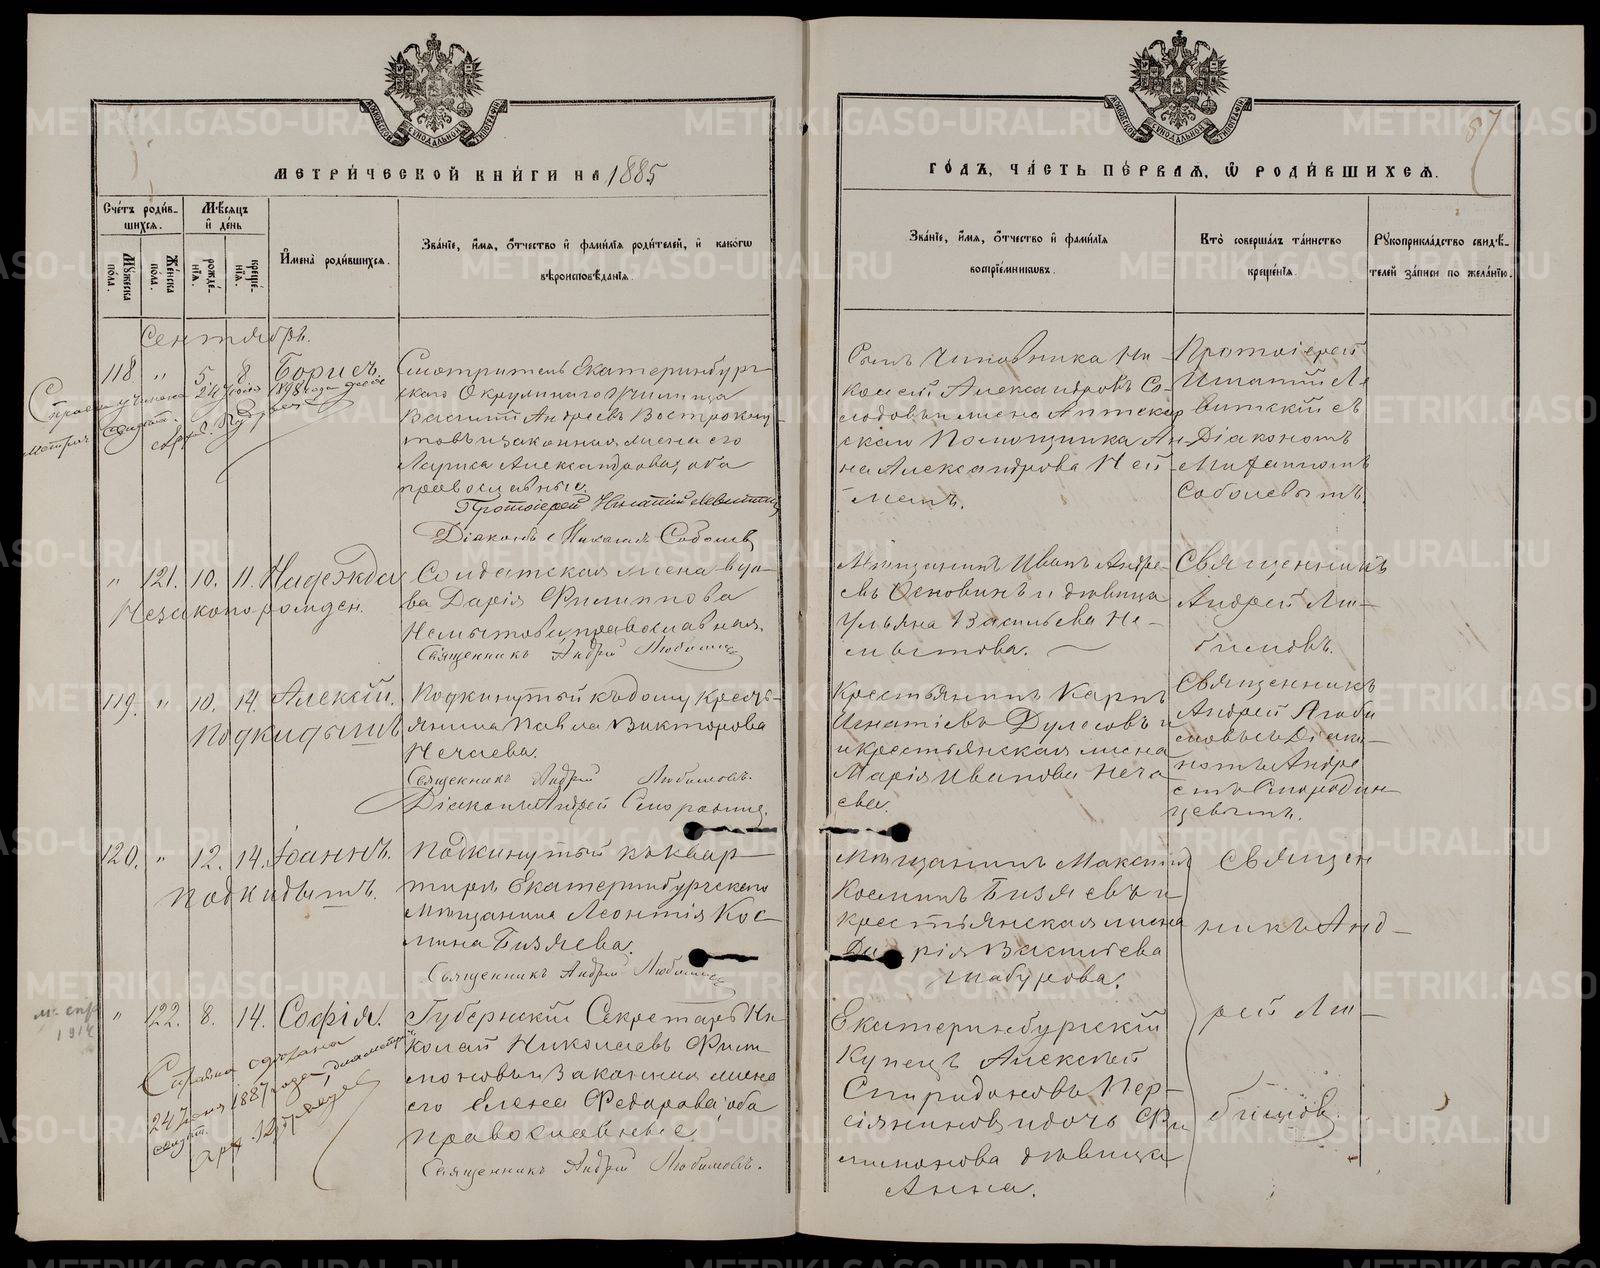 МЕТРИ́ЧЕСКОЙ КНИ́ГИ НА 1885
ГО́ДЪ, ЧА́СТЬ ПЕ́РВАѦ, Ѽ РОДИ́ВШИХСѦ.
87
Сче́тъ роди́в-
шихсѧ.
Мѣ́сѧцъ
и҆ де́нь
Мꙋ́жеска по́ла.
Же́нска по́ла.
рожде́-
нїѧ.
креще́-
нїѧ.
И҆мена̀ роди́вшихсѧ.
Зва́нїе, и҆́мѧ, ѻ҆́тчество и҆ фами́лїѧ роди́телей, и҆ како́гѡ
вѣроисповѣ́данїѧ.
Зва́нїе, и҆́мѧ, ѻ҆́тчество и҆ фами́лїѧ
воспрїе́мникѡвъ.
Кто̀ соверша́лъ та́инство
креще́нїѧ.
Рꙋкоприкла́дство свидѣ́-
телей за́писи по жела́нїю.
Сентябрь.
118 " 5. 8. Борисъ.
Смотритель Екатеринбург-
скаго Окружнаго Училища
Василій Андреевъ Вострокну-
товъ и законная жена его
Лариса Александрова, оба
православные.
Протоіерей Игнатій Левитскій
Діаконъ Николай Соболевъ
Сынъ Чиновника Ни-
колай Александровъ Со-
лодовъ и жена Аптекар
скаго Помощника Ан-
на Александрова Ней
манъ.
Протоіерей
Игнатій Ле
витскій съ
Діакономъ
Соболевымъ
" 121. 10. 11. Надежда
Незаконорожден.
Солдатская жена вдо-
ва Дарія Филиппова
Немытова, православная.
Священникъ Андрей Любимовъ
Мѣщанинъ Иванъ Андре-
евъ Основинъ и дѣвица
Ульяна Васильева Не-
мытова.
Священникъ
Андрей Лю-
бимовъ.
119. " 10. 14. Алексій.
Подкидышъ
Подкинутый къ дому кресть-
янина Павла Викторова
Нечаева.
Священникъ Андрей Любимовъ.
Діаконъ Андрей
Крестьянинъ Карпъ
Игнатіевъ Дулесовъ и
и крестьянская жена
Марія Иванова Неча
ева.
Священникъ
Андрей Люби
мовъ съ Діако-
номъ Андре
120. " 12. 14. Іоаннъ.
Подкидышъ.
Подкинутый къ квар-
тирѣ Екатеринбургскаго
мѣщанина Леонтія Кос-
мина Бизяева.
Священникъ Андрей Любимовъ
Мѣщанинъ Максимъ
Косминъ Бизяевъ и
крестьянская жена
Дарія Васильева
Шабурова.
Священ
никъ Анд-
рей Лю-
бимовъ.
" 122. 8. 14. Софія.
Губернскій Секретарь Ни
колай Николаевъ Фили
моновъ и законная жена
его Елена Федорова, оба
православные.
Священникъ Андрей Любимовъ.
Екатеринбургскій
Купецъ Алексѣй
Спиридоновъ Пер-
сіяниновъ и дочь Фи
лимонова дѣвица
Анна.
м. спр
1914
Справка
1887 года